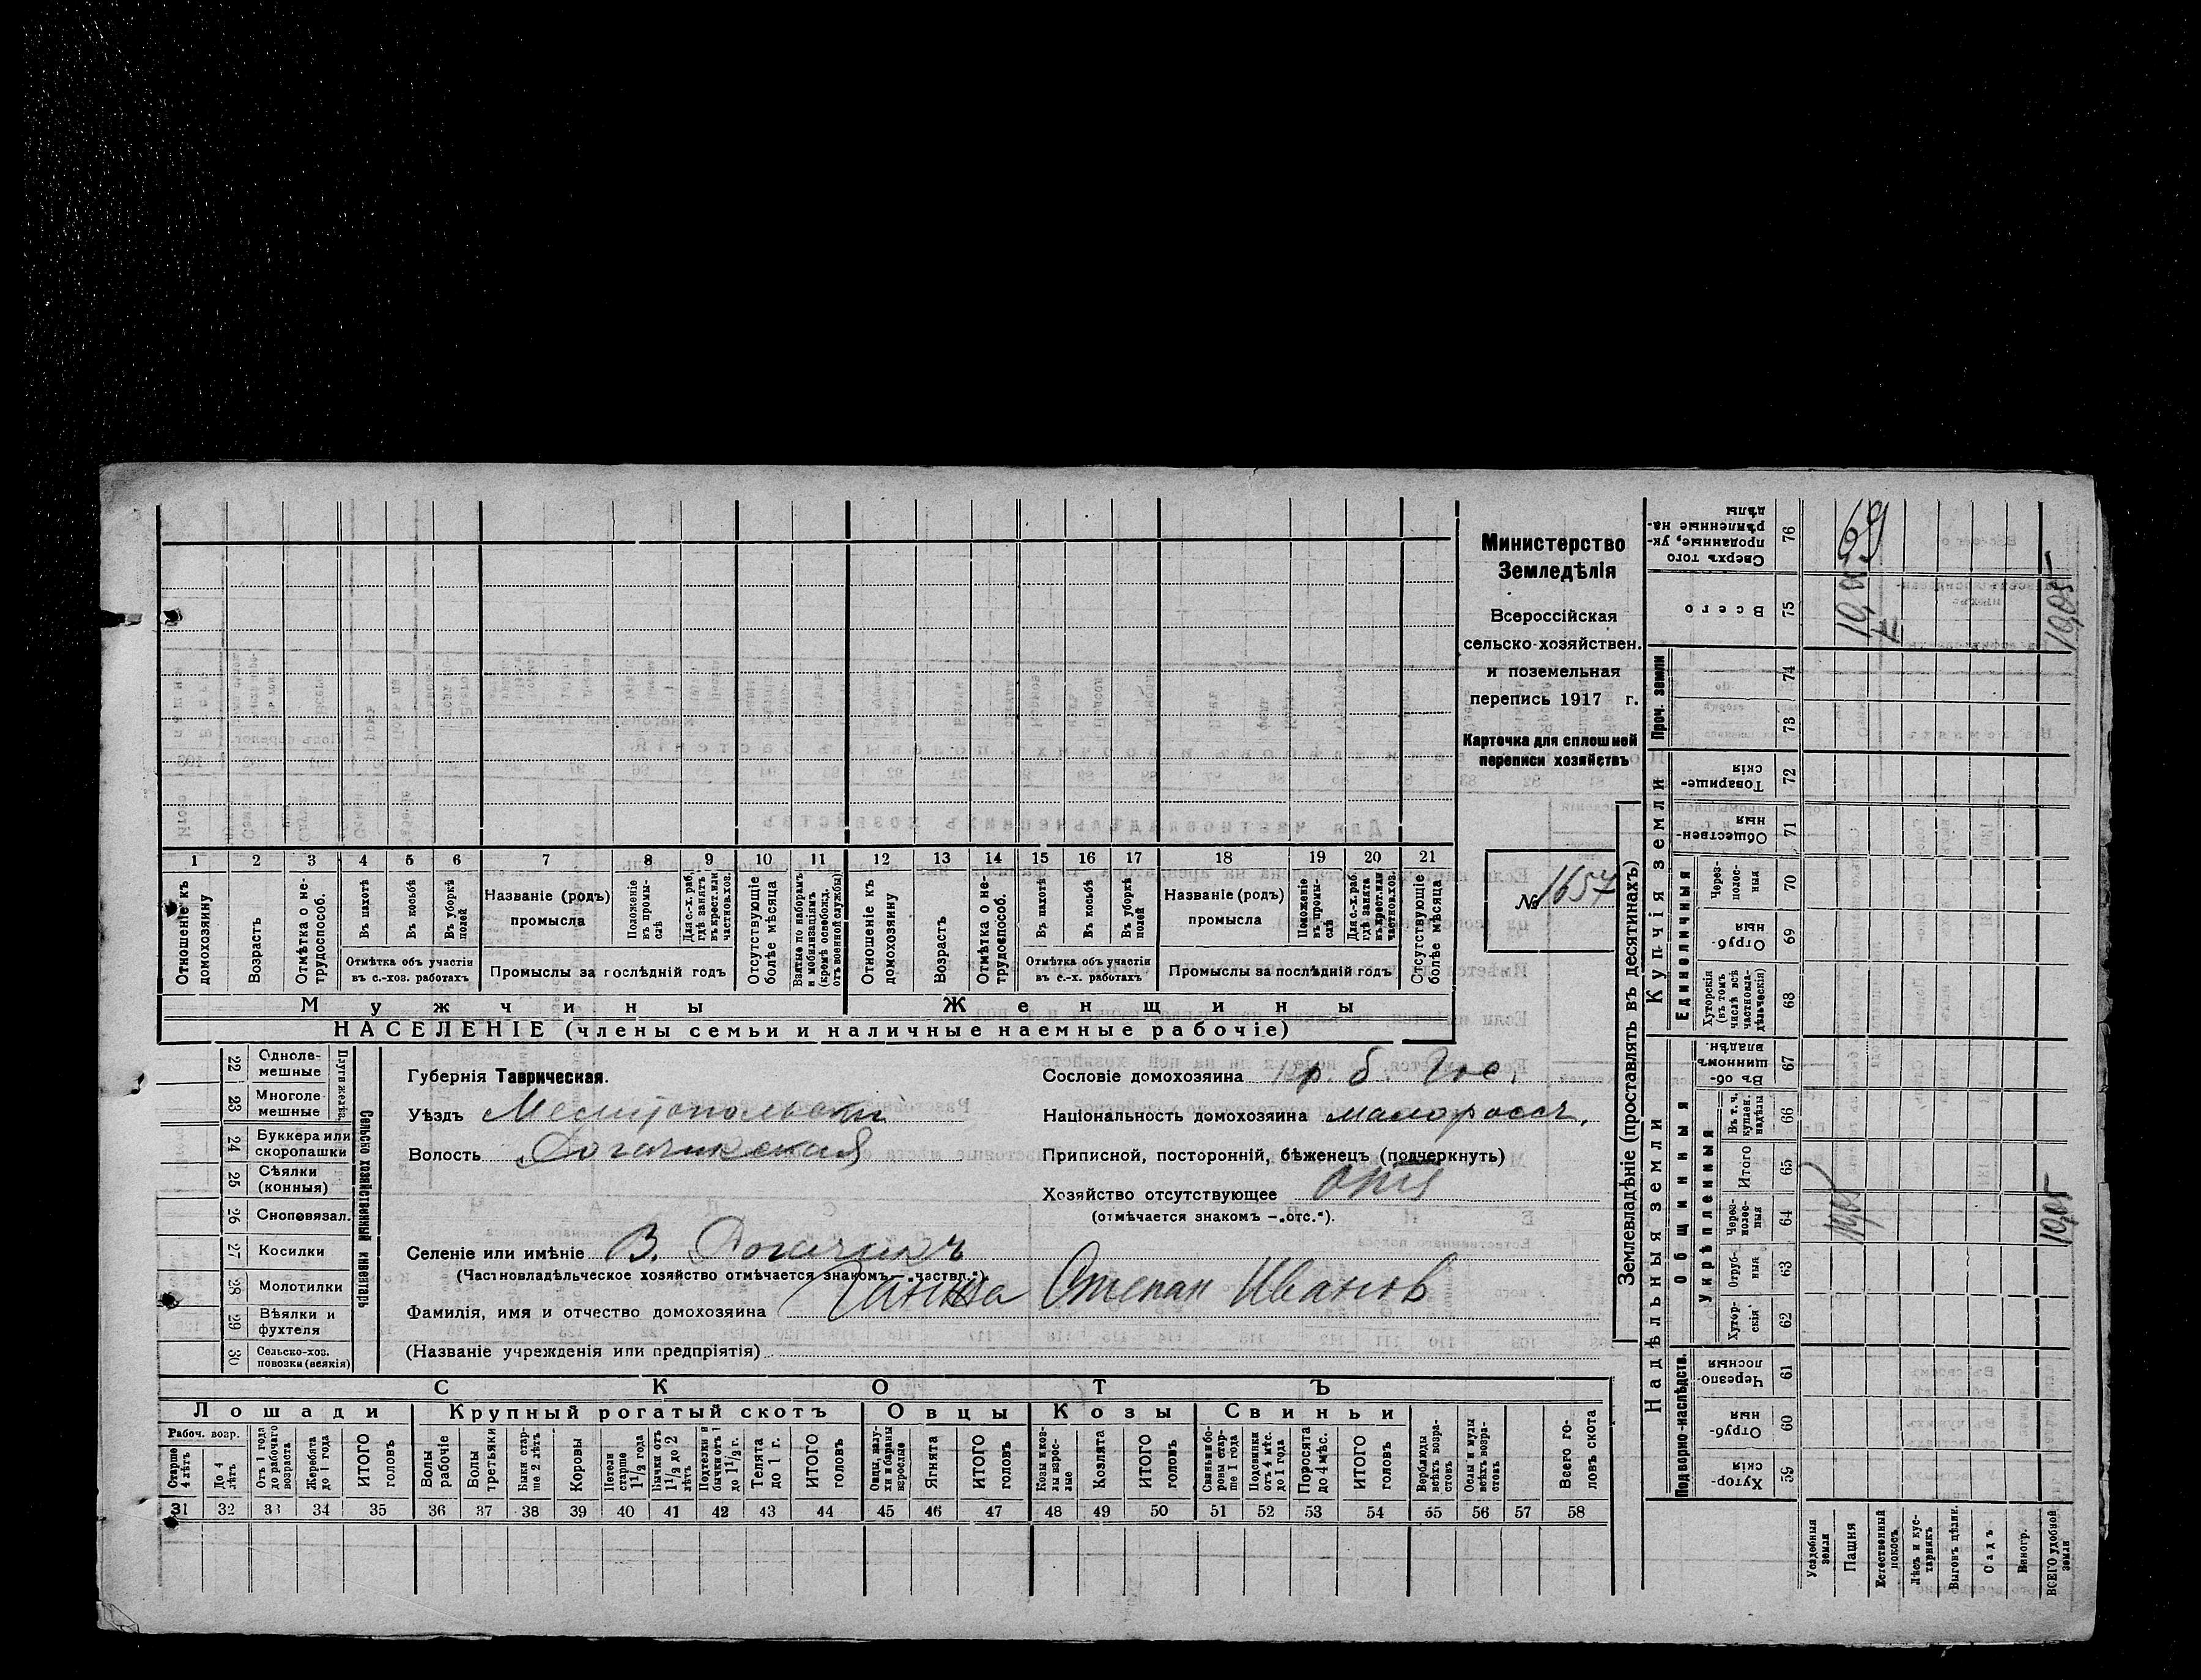 1 2 3 4 5 6 7 8 9 10 11 12 13 14 15 16 17 18 19 20 21
Отношеніе къ домохозяину
Возрастъ
Отмѣтка о не-трудоспособ.
Въ пахотѣ
Въ косьбѣ
Въ уборкѣ полей
Отмѣтка объ участіи
въ с.-хоз. работахъ
Названіе (родъ)
промысла
Положеніе въ промы-слѣ
Для с.-х. раб. гдѣ занятъ въ крест. или частнов. хоз.
Промыслы за послѣдній годъ
Отсутствующіе болѣе мѣсяца
Взятые по наборамъ и мобилизаціямъ (кромѣ освобожд. отъ военной службы)
Отношеніе къ домохозяину
Возрастъ
Отмѣтка о не-трудоспособ.
Въ пахотѣ
Въ косьбѣ
Въ уборкѣ полей
Отмѣтка объ участіи
въ с.-х. работахъ
Названіе (родъ)
промысла
Положеніе въ промы-слѣ
Для с.-х. раб. гдѣ занята въ крест. или частнов. хоз.
Промыслы за послѣдній годъ
Отсутствующіе болѣе мѣсяца
Мужчины
Женщины
НАСЕЛЕНІЕ (члены семьи и наличные наемные рабочіе)
Министерство
Земледѣлія
Всероссійская
сельско-хозяйствен.
и поземельная
перепись 1917 г.
Карточка для сплошной
переписи хозяйствъ
№ 1657
Сельско хозяйственный инвентарь
Плуги желѣз.
22 Одноле-мешные
23 Многоле мешные
24 Буккера или скоропашки
25 Сѣялки (конныя)
26 Сноповязал.
27 Косилки
28 Молотилки
29 Вѣялки и фухтеля
30 Сельско-хоз. повозка (всякія)
Губернія Таврическая.
Уѣздъ Мелитопольскій
Волость Рогачикская
Селеніе или имѣніе В. Рогачикъ
(Частновладѣльческое хозяйство отмѣчается знакомъ—„частвл.“)
Фамилія, имя и отчество домохозяина Степан Иванов
(Названіе учрежденія или предпріятія)
Сословіе домохозяина кр б.
Національность домохозяина малороссъ.
Приписной, посторонній, бѣженец (подчеркнуть)
Хозяйство отсутствующее
(отмѣчается знакомъ —„отс.“).
СКОТЪ
Лошади
Крупный рогатый скотъ
Овцы
Козы
Свиньи
Рабоч. возр.
Старше 4 лѣтъ
До 4 лѣтъ
Отъ 1 года до рабочаго возраста
Жеребята до 1 года
ИТОГО головъ
Волы рабочіе
Волы третьяки
Быки стар-ше 2 лѣтъ
Коровы
Нетели старше 1 1/2 года
Бычки отъ 1 1/2 до 2 лѣтъ
Подтелки и бычки отъ 1 до 1 1/2 г.
Телята до 1 г.
ИТОГО головъ
Овцы, валу-хи и бараны взрослые
Ягнята
ИТОГО головъ
Козы и коз-лы взрос-лые
Козлята
ИТОГО головъ
Свиньи и бо-ровы стар-ше 1 года
Подсвинки отъ 4 мѣс. до 1 года
Поросята до 4 мѣс.
ИТОГО головъ
Верблюды всѣхъ возра-стовъ
Ослы и мулы всѣхъ возра-стовъ
Всего го-ловъ скота
31 32 33 34 35 36 37 38 39 40 41 42 43 44 45 46 47 48 49 50 51 52 53 54 55 56 57 58
Землевладѣніе (проставлять въ десятинахъ)
Надѣльныя земли
Купчія земли
Проч. земли
Подворно-наслѣдств.
Общинныя
Укрѣпленныя
Единоличныя
Сверхъ того проданные, ук-рѣпленные на-дѣлы 76
Всего 75
74
73
Товарище-скія 72
Обществен-ныя 71
Через-полос-ныя 70
Отруб-ныя 69
Хуторскія (въ томъ числѣ всѣ частновла-дѣльческія) 68
Въ об-щинномъ владѣн. 67
Въ т. ч. куплен. надѣлы 66
Итого 65
Через-полос-ныя 64
Отруб-ныя 63
Хутор-скія 62
Черезпо лосныя 61
Отруб-ныя 60
Хутор-скія 59
Усадебныя земли
Пашня
Естественный покосъ
Лѣсъ и кус-тарникъ
Выгонъ цѣлин.
Садъ
Виногр.
ВСЕГО удобной земли
69
10,05
10,05